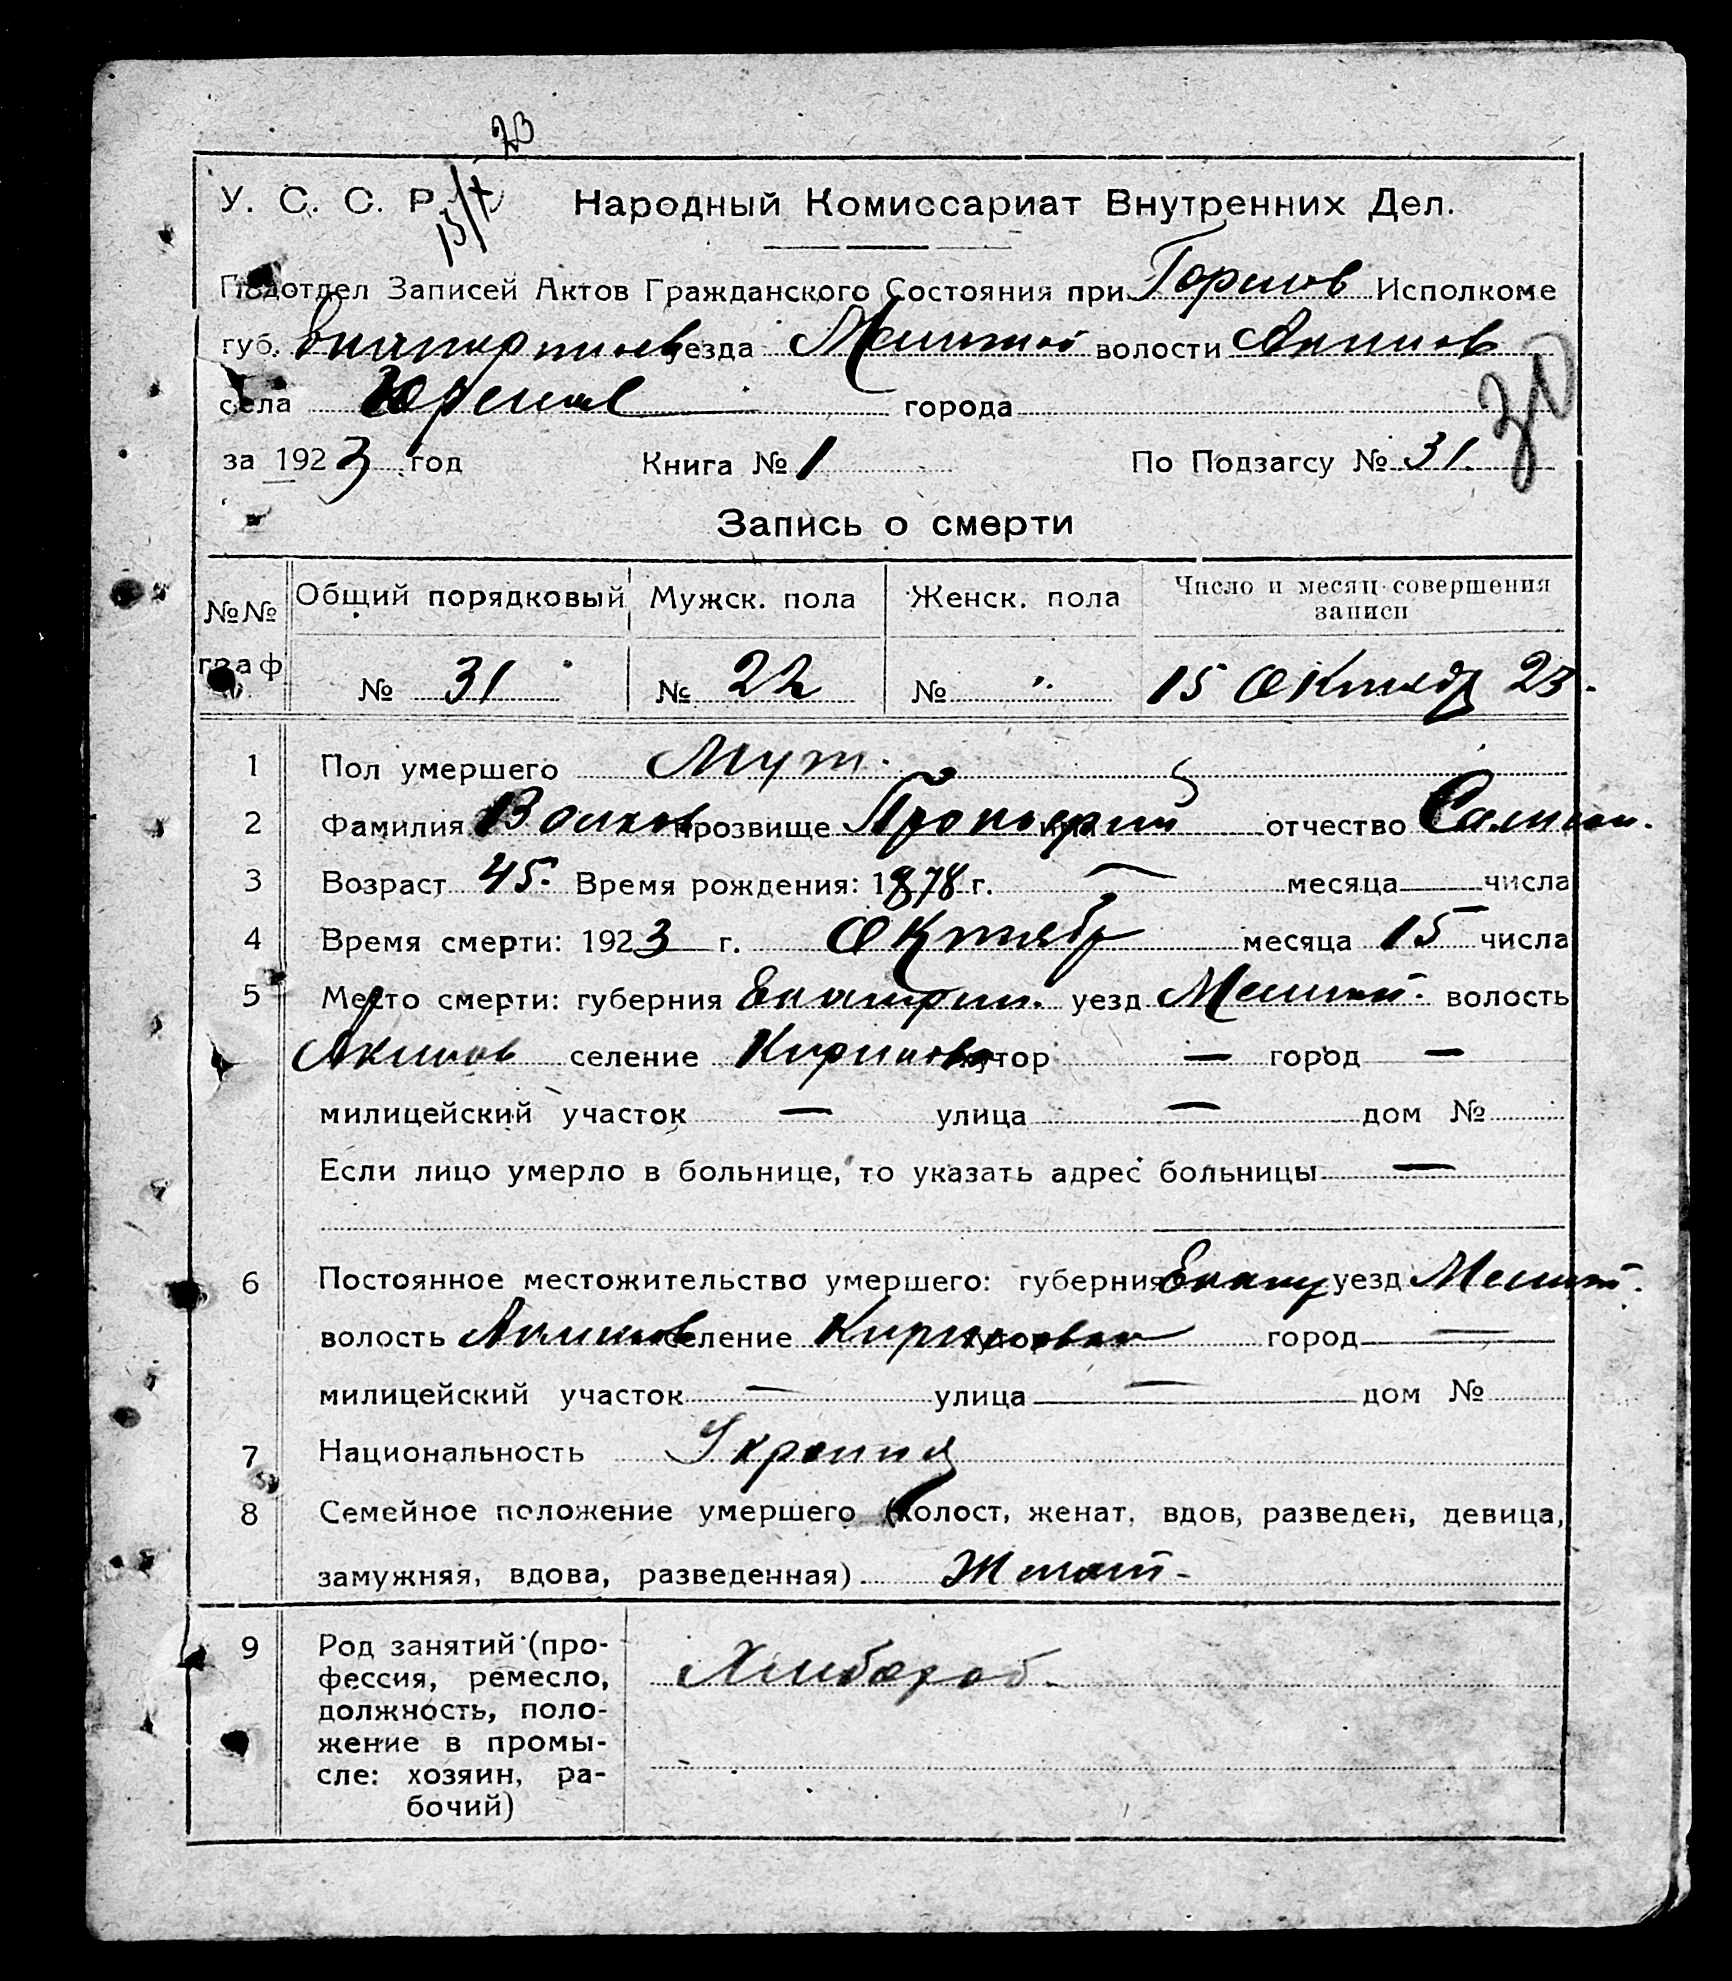 23
15/X
У. С. С. Р. Народный Комиссариат Внутренних Дел.
Подотдел Записей Актов Гражданского Состояния при Исполкоме
губ. уезда волости Акимов
села города
30
за 1923 год Книга № 1 По Подзагсу № 31.
Запись о смерти
№№ граф Общий порядковый Мужск. пола Женск. пола Число и месяц совершения записи
№ 31 № 22 № " 15 Октябр 23.
1 Пол умершего Муж.
2 Фамилия Волков прозвище Прокофий отчество
3 Возраст 45. Время рождения: 1878 г. — месяца числа
4 Время смерти: 1923 г. Октябр месяца 15 числа
5 Место смерти: губерния Екатерин. уезд Мелит. волость
Акимов селение хутор — город —
милицейский участок — улица — дом №
Если лицо умерло в больнице, то указать адрес больницы —
6 Постоянное местожительство умершего: губерния Екат уезд Мелит.
волость Акимов селение хутор город —
милицейский участок — улица — дом №
7 Национальность Украине
8 Семейное положение умершего (холост, женат, вдов, разведен, девица,
замужняя, вдова, разведенная) Женат -
9 Род занятий (про-
фессия, ремесло, Хлибороб.
должность, поло-
жение в промы-
сле: хозяин, ра-
бочий)